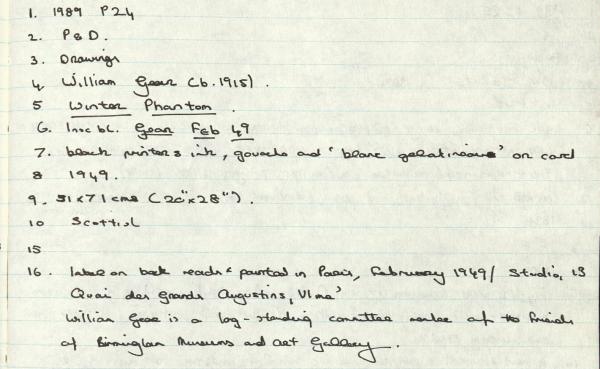 1. 1989 P24
2. P&D.
3. Drawings
4. William Gear (b. 1915).
5 Winter Phantom.
6. Insc bl. Gear Feb 49
7. black printers ink, gouache and 'blanc gelatineous' on card
8 1949.
9. 51x71cms (20"x28").
10 Scottish
15
16. label on back reads 'painted in Paris, February 1949/ Studio, 13
Quai des Grands Augustins, VIme'
William Gear is a long-standing committee member of the Friends
of Birmingham Museums and Art Gallery.